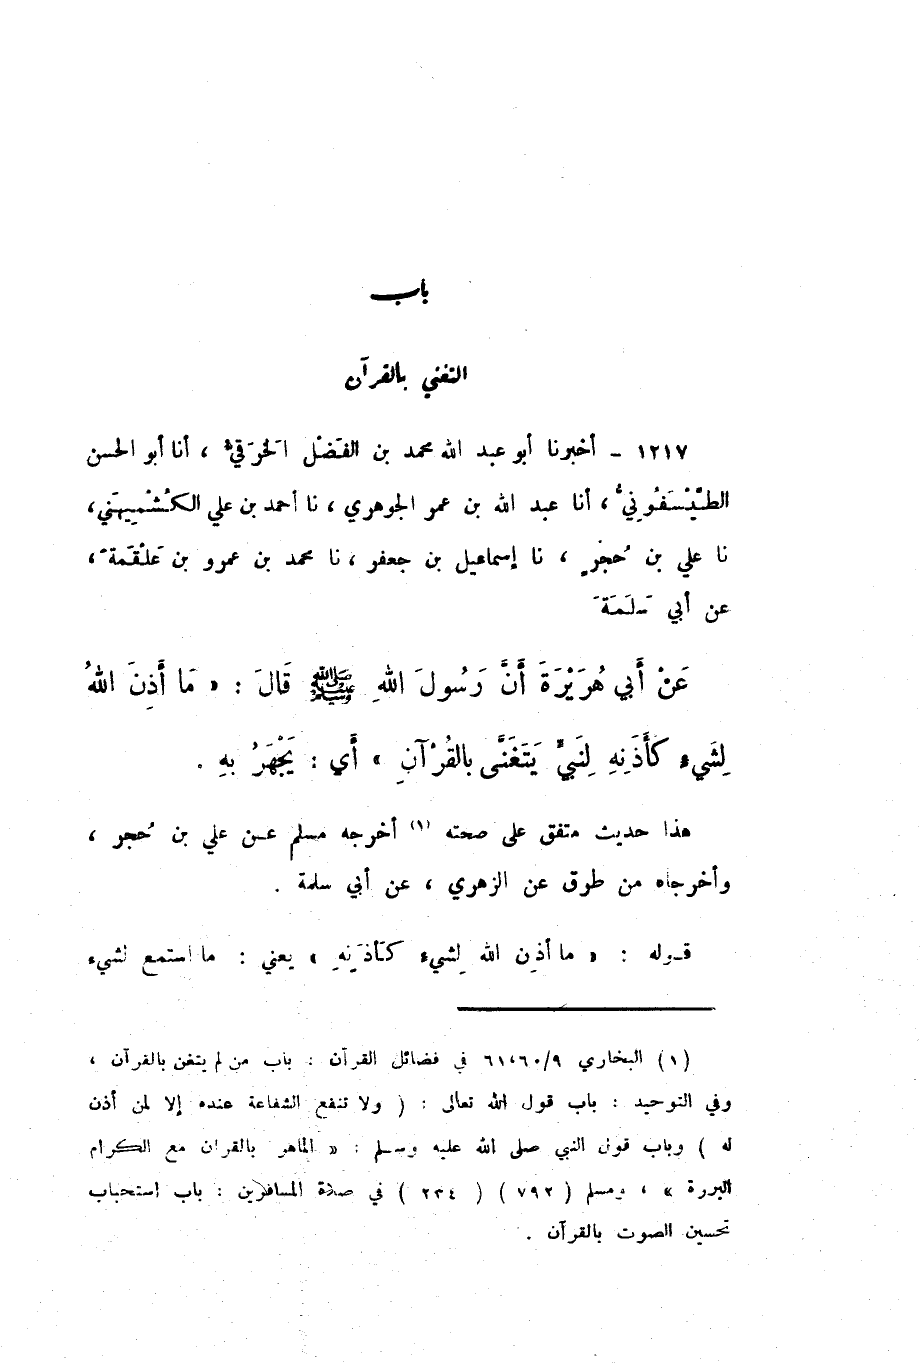 باب
التغني بالقرآن
١٢١٧ - أخبرنا أبو عبد الله محمد بن الفَضْل الخَرَقيُّ ، أنا أبو الحسن
الطَّيْسَفُونيُّ ، أنا عبد الله بن عمر الجوهري ، نا أحمد بن علي الكُشْمِيهَني،
نا علي بن حُجْرٍ ، نا إسماعيل بن جعفر ، نا محمد بن عمرو بن عَلْقَمَةَ ،
عن أبي سَلَمَةَ
عَنْ أَبي هُرَيْرَةَ أَنَّ رَسُولَ اللهِ ﷺ قَالَ : « مَا أَذِنَ اللهُ
لِشَيءٍ كَأَذَنِهِ لِنَبيٍّ يَتَغَنَّى بالقُرْآنِ » أَي : يَجْهَرُ بِهِ .
هذا حديث متفق على صحته (١) أخرجه مسلم عن علي بن حُجر ،
وأخرجاه من طرق عن الزهري ، عن أبي سلمة .
قوله : « ما أذِن الله لِشيء كَأذَنِهِ » يعني : ما استمع لشيء
(١) البخاري ٦١،٦٠/٩ في فضائل القرآن : باب من لم يتغن بالقرآن ،
وفي التوحيد : باب قول الله تعالى : ( ولا تنفع الشفاعة عنده إلا لمن أذن
له ) وباب قول النبي صلى الله عليه وسلم : « الماهر بالقرآن مع الكرام
البررة » ، ومسلم ( ٧٩٢ ) ( ٢٣٤ ) في صلاة المسافرين : باب استحباب
تحسين الصوت بالقرآن .